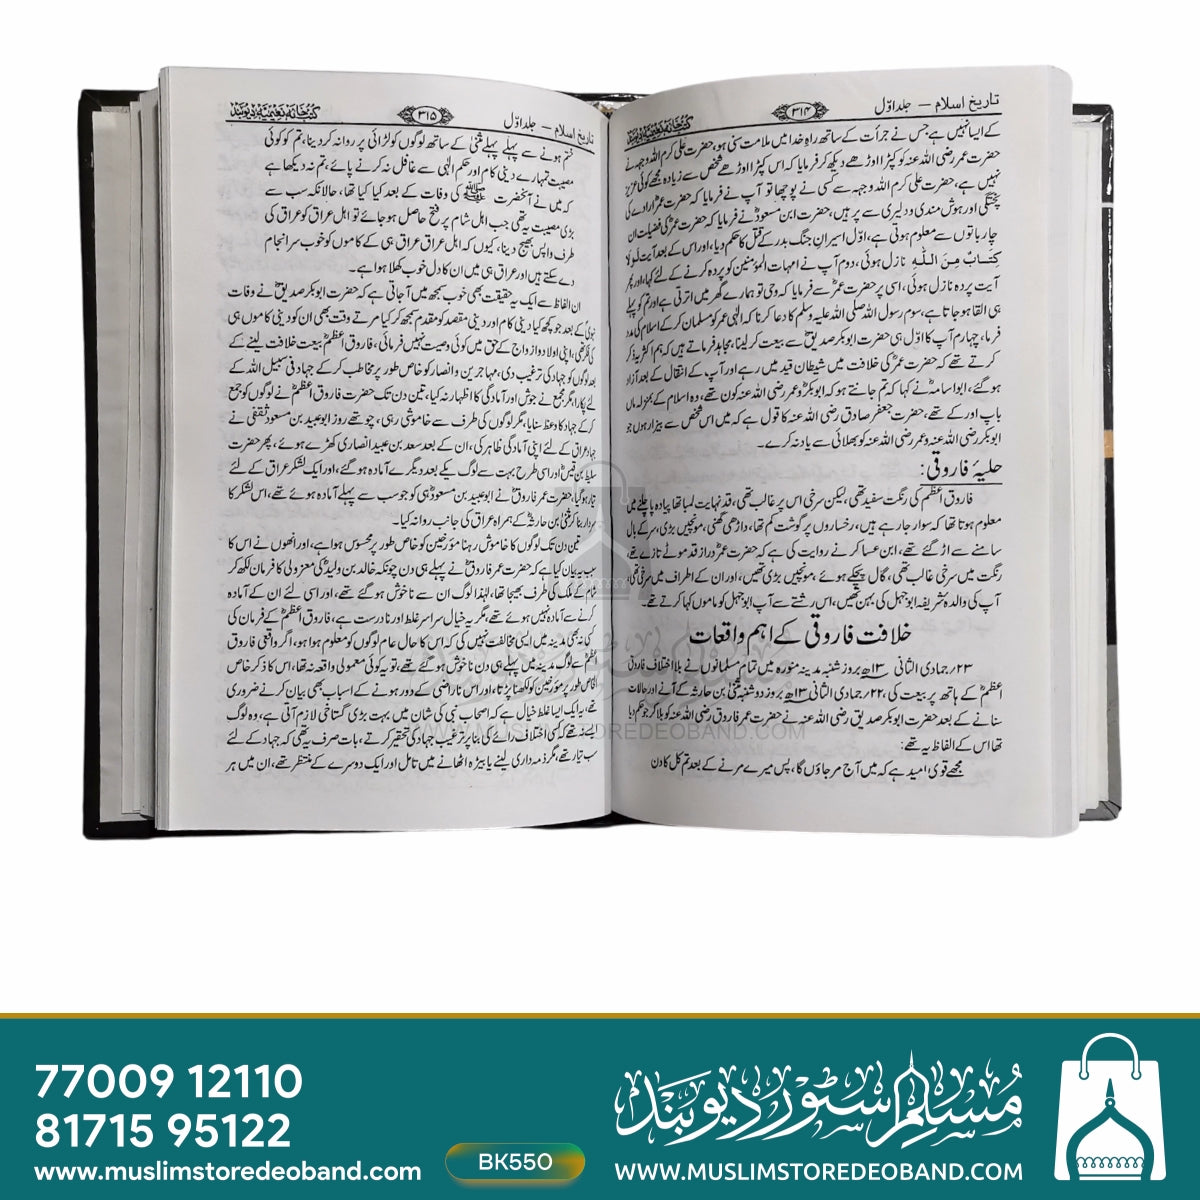 تاریخ اسلام — جلد اوّل
۳۱۴
کتب خانہ نعیمیہ دیوبند
کے ایسا نہیں ہے جس نے جرأت کے ساتھ راہِ خدا میں ملامت سنی ہو، حضرت علی کرم اللہ وجہہ نے
حضرت عمر رضی اللہ عنہ کو کپڑا اوڑھے دیکھ کر فرمایا کہ اس کپڑا اوڑھے شخص سے زیادہ مجھے کوئی عزیز
نہیں ہے، حضرت علی کرم اللہ وجہہ سے کسی نے پوچھا تو آپ نے فرمایا کہ حضرت عمرؓ ارادے کی
پختگی اور ہوش مندی و دلیری سے پر ہیں، حضرت ابن مسعودؓ نے فرمایا کہ حضرت عمرؓ کی فضیلت ان
چار باتوں سے معلوم ہوتی ہے، اوّل اسیرانِ جنگ بدر کے قتل کا حکم دیا، اور اس کے بعد آیت لولا
کتابٌ مِنَ اللّٰہِ نازل ہوئی، دوم آپ نے امہات المؤمنین کو پردہ کرنے کے لئے کہا، اور پھر
آیت پردہ نازل ہوئی، اسی پر حضرت عمرؓ سے فرمایا کہ وحی تو ہمارے گھر میں اترتی ہے اور تم کو پہلے
ہی القا ہو جاتا ہے، سوم رسول اللہ صلی اللہ علیہ وسلم کا دعا کرنا کہ الٰہی عمر کو مسلمان کر کے اسلام کی مدد
فرما، چہارم آپ کا اوّل ہی حضرت ابوبکر صدیقؓ سے بیعت کر لینا، مجاہد فرماتے ہیں کہ ہم اکثر یہ ذکر
کرتے تھے کہ حضرت عمرؓ کی خلافت میں شیطان قید میں رہے اور آپ کے انتقال کے بعد آزاد
ہو گئے، ابواسامہؓ نے کہا کہ تم جانتے ہو کہ ابوبکرؓ و عمر رضی اللہ عنہ کون تھے، وہ اسلام کے بمنزلہ ماں
باپ اور کے تھے، حضرت جعفر صادق رضی اللہ عنہ کا قول ہے کہ میں اس شخص سے بیزار ہوں جو
ابوبکر رضی اللہ عنہ و عمر رضی اللہ عنہ کو بھلائی سے یاد نہ کرے۔
حلیۂ فاروقی:
فاروق اعظمؓ کی رنگت سفید تھی، لیکن سرخی اس پر غالب تھی، قد نہایت لمبا تھا پیادہ پا چلنے میں
معلوم ہوتا تھا کہ سوار جا رہے ہیں، رخساروں پر گوشت کم تھا، داڑھی گھنی، مونچھیں بڑی، سر کے بال
سامنے سے اڑ گئے تھے، ابن عساکر نے روایت کی ہے کہ حضرت عمرؓ دراز قد موٹے تازے تھے،
رنگت میں سرخی غالب تھی، گال پچکے ہوئے، مونچھیں بڑی تھیں، اور ان کے اطراف میں سرخی تھی
آپ کی والدہ شریفہ ابوجہل کی بہن تھیں، اس رشتے سے آپ ابوجہل کو ماموں کہا کرتے تھے۔
خلافت فاروقی کے اہم واقعات
۲۳؍ جمادی الثانی ۱۳ھ بروز شنبہ مدینہ منورہ میں تمام مسلمانوں نے بلا اختلاف فاروق
اعظمؓ کے ہاتھ پر بیعت کی، ۲۲؍ جمادی الثانی ۱۳ھ بروز دوشنبہ مثنیٰ بن حارثہ کے آنے اور حالات
سنانے کے بعد حضرت ابوبکر صدیق رضی اللہ عنہ نے حضرت عمر فاروق رضی اللہ عنہ کو بلا کر جو حکم دیا
تھا اس کے الفاظ یہ تھے:
مجھے قوی امید ہے کہ میں آج مر جاؤں گا، پس میرے مرنے کے بعد تم کل کا دن
تاریخ اسلام — جلد اوّل
۳۱۵
کتب خانہ نعیمیہ دیوبند
ختم ہونے سے پہلے پہلے مثنیٰ کے ساتھ لوگوں کو لڑائی پر روانہ کر دینا، تم کو کوئی
مصیبت تمہارے دینی کام اور حکم الٰہی سے غافل نہ کرنے پائے، تم نے دیکھا ہے
کہ میں نے آنحضرت ﷺ کی وفات کے بعد کیا کیا تھا، حالانکہ سب سے
بڑی مصیبت یہ تھی جب اہل شام پر فتح حاصل ہو جائے تو اہل عراق کو عراق کی
طرف واپس بھیج دینا، کیوں کہ اہل عراق عراق ہی کے کاموں کو خوب سرانجام
دے سکتے ہیں اور عراق ہی میں ان کا دل خوب کھلا ہوا ہے۔
ان الفاظ سے ایک یہ حقیقت بھی خوب سمجھ میں آ جاتی ہے کہ حضرت ابوبکر صدیقؓ نے وفات
نبویؐ کے بعد جو کچھ کیا دینی کام اور دینی مقصد کو مقدم سمجھ کر کیا مرتے وقت بھی ان کو دینی کاموں ہی
کی فکر تھی، اپنی اولاد و ازواج کے حق میں کوئی وصیت نہیں فرمائی، فاروق اعظمؓ بیعت خلافت لینے کے
بعد لوگوں کو جہاد کی ترغیب دی، مہاجرین و انصار کو خاص طور پر مخاطب کر کے جہاد فی سبیل اللہ کے
لئے پکارا مگر مجمع نے جوش اور آمادگی کا اظہار نہ کیا، تین دن تک حضرت فاروق اعظمؓ نے لوگوں کو جمع
کر کے جہاد کا وعظ سنایا، مگر لوگوں کی طرف سے خاموشی رہی، چوتھے روز ابوعبید بن مسعود ثقفی نے
جہاد عراق کے لئے اپنی آمادگی ظاہر کی، ان کے بعد سعد بن عبید انصاری کھڑے ہوئے، پھر حضرت
سلیط بن قیسؓ اور اسی طرح بہت سے لوگ یکے بعد دیگرے آمادہ ہو گئے، اور ایک لشکر عراق کے لئے
تیار ہو گیا، حضرت عمر فاروقؓ نے ابوعبید بن مسعودؓ ہی کو جو سب سے پہلے آمادہ ہوئے تھے، اس لشکر کا
سردار بنا کر مثنیٰ بن حارثہ کے ہمراہ عراق کی جانب روانہ کیا۔
تین دن تک لوگوں کا خاموش رہنا مؤرخین کو خاص طور پر محسوس ہوا ہے، اور انھوں نے اس کا
سبب یہ بیان کیا ہے کہ حضرت عمر فاروقؓ نے پہلے ہی دن چونکہ خالد بن ولیدؓ کی معزولی کا فرمان لکھ کر
شام کے ملک کی طرف بھیجا تھا، لہٰذا لوگ ان سے ناخوش ہو گئے تھے، اور اسی لئے ان کے آمادہ
کرنے سے آمادہ نہیں ہوئے تھے، مگر یہ خیال سراسر غلط اور نادرست ہے، فاروق اعظمؓ کے فرمان کی
کسی نے بھی مدینہ میں ایسی مخالفت نہیں کی کہ اس کا حال عام لوگوں کو معلوم ہوا ہو، اگر واقعی فاروق
اعظمؓ سے لوگ مدینہ میں پہلے ہی دن ناخوش ہو گئے تھے، تو یہ کوئی معمولی واقعہ نہ تھا، اس کا ذکر خاص
الخاص طور پر مؤرخین کو لکھنا پڑتا، اور اس ناراضی کے دور ہونے کے اسباب بھی بیان کرنے ضروری
تھے، یہ ایک ایسا غلط خیال ہے کہ اصحاب نبی کی شان میں بہت بڑی گستاخی لازم آتی ہے، وہ لوگ
ایسے نہ تھے کہ کسی اختلاف رائے کی بنا پر ترغیب جہاد کی تحقیر کرتے، بات صرف یہ تھی کہ جہاد کے لئے
سب تیار تھے، مگر ذمہ داری لینے یا بیڑہ اٹھانے میں تامل اور ایک دوسرے کے منتظر تھے، ان میں ہر
WWW.MUSLIMSTOREDEOBAND.COM
77009 12110
81715 95122
www.muslimstoredeoband.com
BK550
مسلم سٹور دیوبند
WWW.MUSLIMSTOREDEOBAND.COM